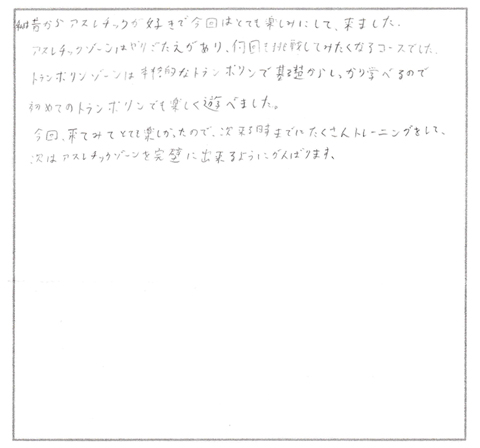 私は昔からアスレチックが好きで今回はとても楽しみにして、来ました。
アスレチックゾーンはやりごたえがあり、何回も挑戦してみたくなるコースでした。
トランポリンゾーンは本格的なトランポリンで基礎からしっかり学べるので
初めてのトランポリンでも楽しく遊べました。
今回、来てみてとても楽しかったので、次来る時までにたくさんトレーニングをして、
次はアスレチックゾーンを完璧に出来るようにがんばります。